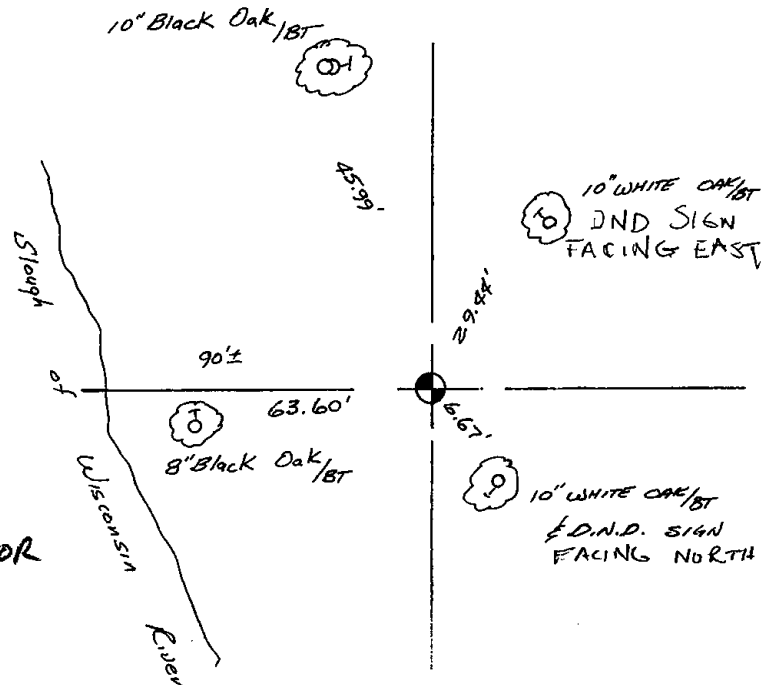 10" Black Oak/BT
45.99'
10" WHITE OAK/BT
DND SIGN
FACING EAST
29.44'
Slough
of
Wisconsin
River
90'±
63.60'
6.67'
8" Black Oak/BT
10" WHITE OAK/BT
& D.N.D. SIGN
FACING NORTH
OR